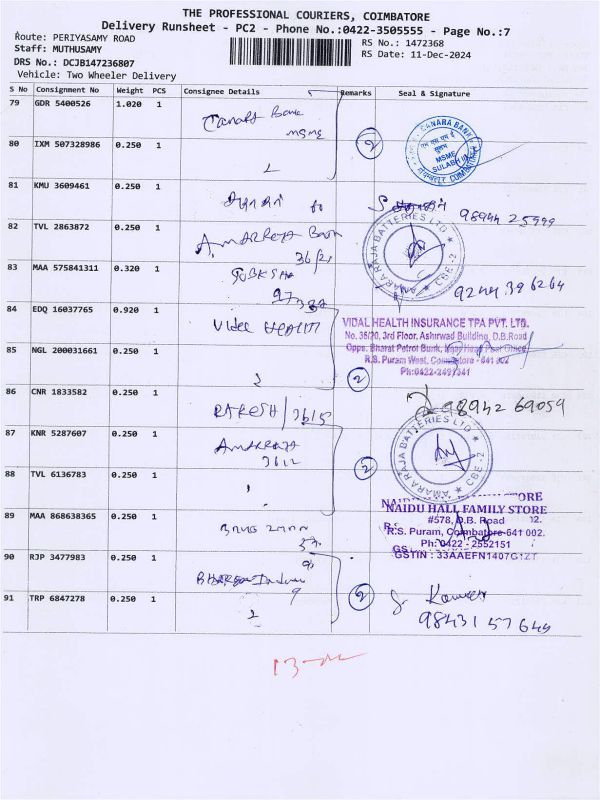 THE PROFESSIONAL COURIERS, COIMBATORE
Delivery Runsheet - PC2 - Phone No.:0422-3505555 - Page No.:7
Route: PERIYASAMY ROAD
RS No.: 1472368
Staff: MUTHUSAMY
RS Date: 11-Dec-2024
DRS No.: DCJB147236807
Vehicle: Two Wheeler Delivery
S No Consignment No Weight PCS Consignee Details Remarks Seal & Signature
79 GDR 5400526 1.020 1
Canara Bank
MSME
CANARA BANK
MSME
SULABH
COIMBATORE
80 IXM 507328986 0.250 1
2
81 KMU 3609461 0.250 1
98944 25999
82 TVL 2863872 0.250 1
AMARA RAJA BATTERIES LTD
CBE-2
83 MAA 575841311 0.320 1
9244 396264
84 EDQ 16037765 0.920 1
Vidal HEALTH
VIDAL HEALTH INSURANCE TPA PVT. LTD.
No. 36/20, 3rd Floor, Ashirwad Building, D.B.Road
Opps. Bharat Petrol Bunk, Near Head Post Office
R.S. Puram West, Coimbatore - 641 002
85 NGL 200031661 0.250 1
2
86 CNR 1833582 0.250 1
RAKESH / 3615
98942 69059
87 KNR 5287607 0.250 1
3612
2
AMARA RAJA BATTERIES LTD
CBE-2
88 TVL 6136783 0.250 1
89 MAA 868638365 0.250 1
NAIDU HALL FAMILY STORE
#578, D.B. Road
R.S. Puram, Coimbatore-641 002.
Ph: 0422 - 2552151
GSTIN : 33AAEFN1407G1ZT
90 RJP 3477983 0.250 1
91 TRP 6847278 0.250 1
2
98431 57649